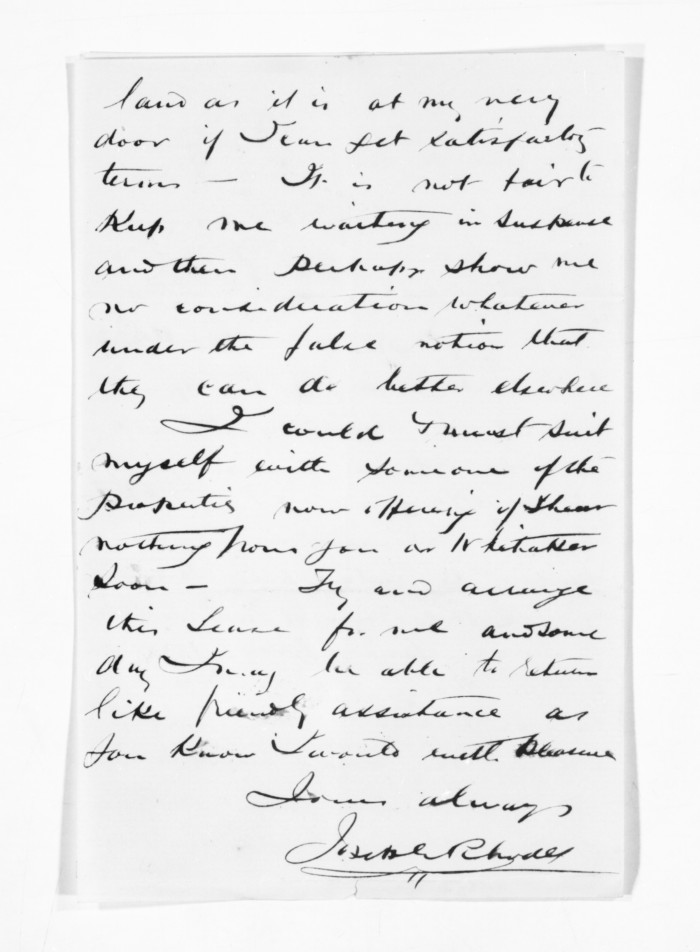 land as it is at my very
door if I can get satisfactory
terms — It is not fair to
Keep me waiting in suspense
and then perhaps show me
no consideration whatever
under the false notion that
they can do better elsewhere
I could & must suit
myself with someone of the
properties now offering if I hear
nothing from you or Whitaker
Soon — Try and arrange
this Lease for me and some
day I may be able to return
like friendly assistance as
you know I would with pleasure
Yours always
Joseph Rhodes